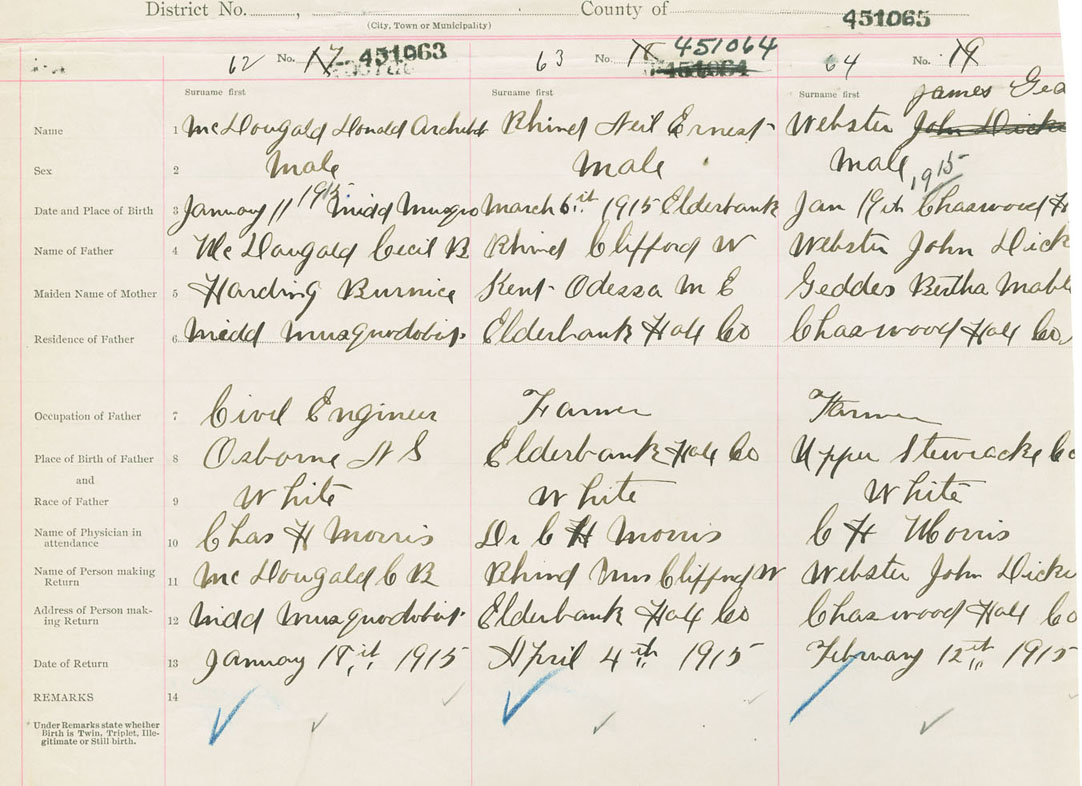 District No. , County of
(City, Town or Municipality)
451065
62 No. 17 451063 63 No. 18 451064 451064 64 No. 19
Surname first Surname first Surname first
James Ged
Name 1 McDougald Donald Archibd Rhind Neil Ernest Webster John Dicke
Sex 2 Male Male Male
Date and Place of Birth 3 January 11 1915 Midd Musquo March 6th 1915 Elderbank Jan 19th 1915 Chaswood H
Name of Father 4 McDougald Cecil B Rhind Clifford W Webster John Dick
Maiden Name of Mother 5 Harding Burnice Kent Odessa M E Geddes Bertha Mabl
Residence of Father 6 Midd Musquodobit Elderbank Hal Co Chaswood Hal Co,
Occupation of Father 7 Civil Engineer Farmer Farmer
Place of Birth of Father 8 Osborne N S Elderbank Hal Co Upper Stewiacke Co
and
Race of Father 9 White White White
Name of Physician in
attendance 10 Chas H Morris Dr C H Morris C H Morris
Name of Person making
Return 11 McDougald C B Rhind Mrs Clifford W Webster John Dicki
Address of Person mak-
ing Return 12 Midd Musquodobit Elderbank Hal Co Chaswood Hal Co
Date of Return 13 January 18th 1915 April 4th 1915 February 12th 1915
REMARKS 14
Under Remarks state whether
Birth is Twin, Triplet, Ille-
gitimate or Still birth.